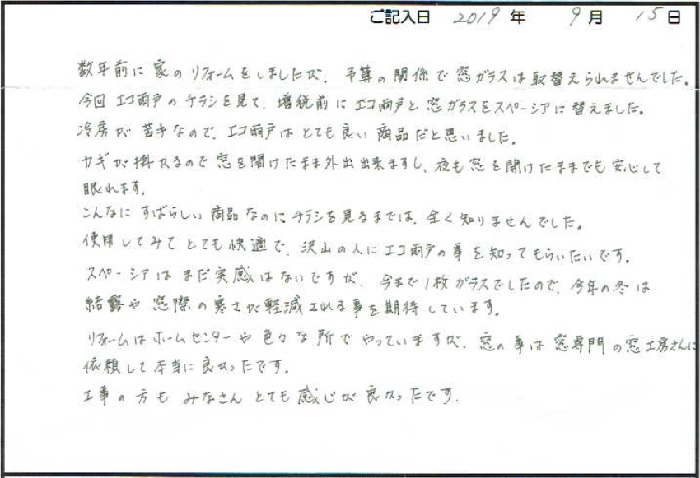 ご記入日 2019 年 9 月 15 日
数年前に家のリフォームをしましたが、予算の関係で窓ガラスは取替えられませんでした。
今回エコ雨戸のチラシを見て、増税前にエコ雨戸と窓ガラスをスペーシアに替えました。
冷房が苦手なので、エコ雨戸はとても良い商品だと思いました。
カギが掛かるので窓を開けたまま外出出来ますし、夜も窓を開けたままでも安心して
眠れます。
こんなにすばらしい商品なのにチラシを見るまでは、全く知りませんでした。
使用してみてとても快適で、沢山の人にエコ雨戸の事を知ってもらいたいです。
スペーシアはまだ実感はないですが、今まで1枚ガラスでしたので、今年の冬は
結露や窓際の寒さが軽減される事を期待しています。
リフォームはホームセンターや色々な所でやっていますが、窓の事は窓専門の窓工房さんに
依頼して本当に良かったです。
工事の方もみなさんとても感じが良かったです。